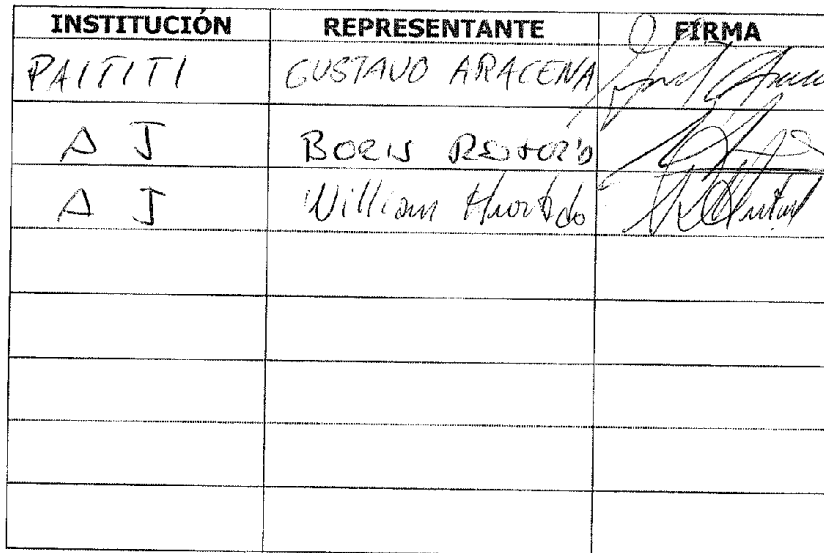 INSTITUCIÓN REPRESENTANTE FIRMA
PAITITI GUSTAVO ARACENA
A J Boris
A J William Hurtado